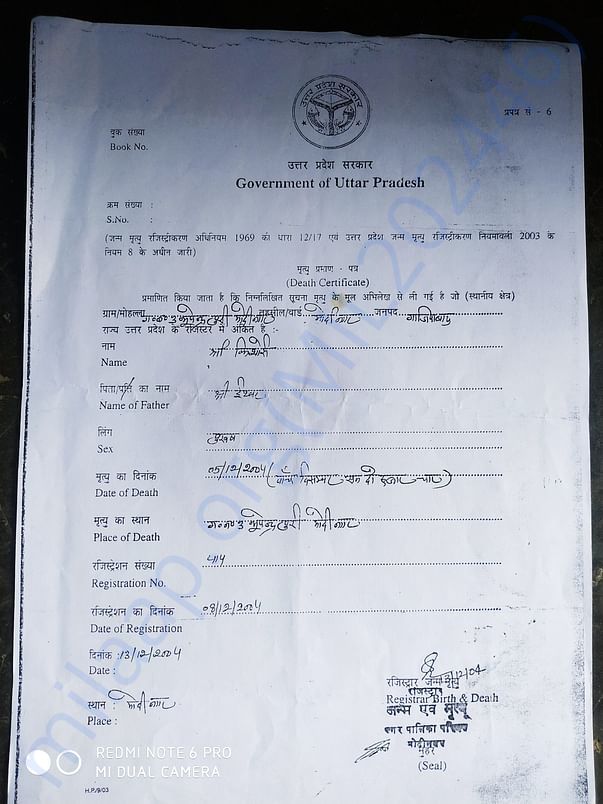 उत्तर प्रदेश सरकार
प्रपत्र सं - 6
बुक संख्या
Book No.
उत्तर प्रदेश सरकार
Government of Uttar Pradesh
क्रम संख्या :
S.No. :
(जन्म मृत्यु रजिस्ट्रीकरण अधिनियम 1969 की धारा 12/17 एवं उत्तर प्रदेश जन्म मृत्यु रजिस्ट्रीकरण नियमावली 2003 के
नियम 8 के अधीन जारी)
मृत्यु प्रमाण - पत्र
(Death Certificate)
प्रमाणित किया जाता है कि निम्नलिखित सूचना मृत्यु के मूल अभिलेख से ली गई है जो (स्थानीय क्षेत्र)
ग्राम/मोहल्ला भूपेन्द्रपुरी मोदीनगर तहसील/वार्ड मोदीनगर जनपद गाजियाबाद
राज्य उत्तर प्रदेश के रजिस्टर में अंकित है :-
नाम
Name श्री किशोरी
पिता/पति का नाम श्री
Name of Father
लिंग
Sex पुरुष
मृत्यु का दिनांक 05/12/2004 (पाँच दिसम्बर सन दो हजार चार)
Date of Death
मृत्यु का स्थान भूपेन्द्रपुरी मोदीनगर
Place of Death
रजिस्ट्रेशन संख्या
Registration No.
रजिस्ट्रेशन का दिनांक 08/12/2004
Date of Registration
दिनांक : 13/12/2004
Date :
रजिस्ट्रार जन्म मृत्यु
रजिस्ट्रार
Registrar Birth & Death
स्थान : मोदीनगर
Place :
जन्म एवं मृत्यु
नगर पालिका परिषद
मोदीनगर
मुहर
(Seal)
H.P./9/03
milaap.org(MIL2024465)
REDMI NOTE 6 PRO
MI DUAL CAMERA